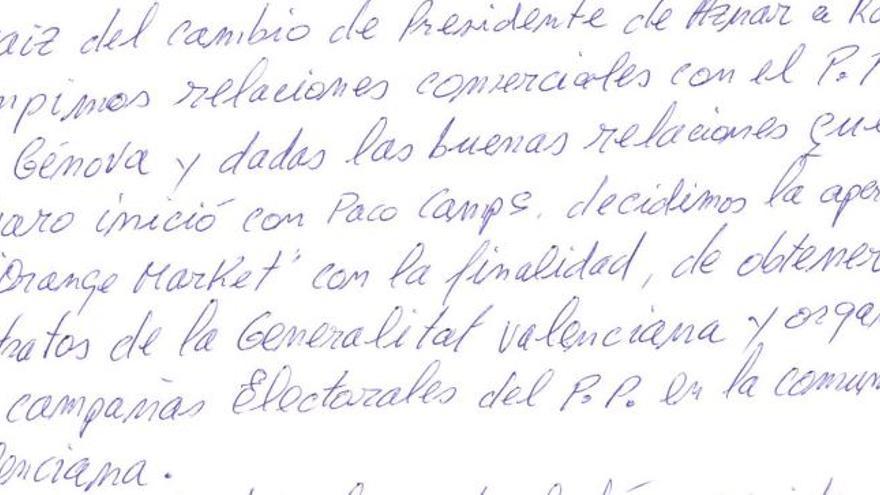 raiz del cambio de Presidente de Aznar a Ra
mpimos relaciones comerciales con el P.P
Génova y dadas las buenas relaciones que
varo inició con Paco Camps. decidimos la aper
"Orange Market" con la finalidad, de obtener
tratos de la Generalitat valenciana y organ
campañas Electorales del P.P. en la comun
enciana.